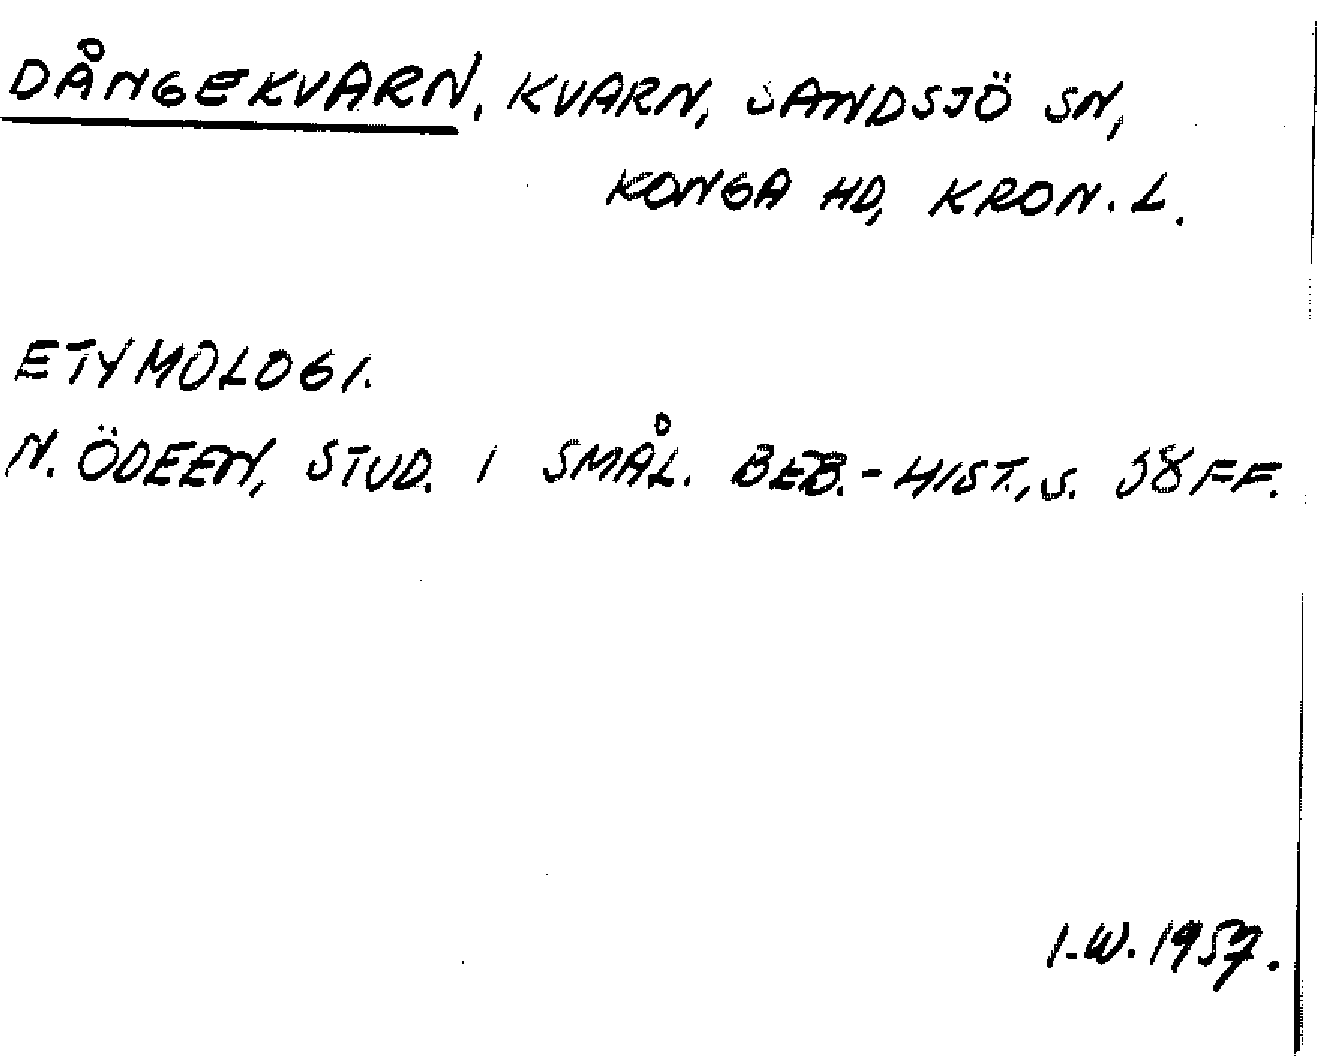 DÅNGEKVARN, KVARN, SANDSJÖ SN,
KONGA HD, KRON. L.
ETYMOLOGI.
N. ÖDEEN, STUD. I SMÅL. BEB.-HIST., S. 58 FF.
I.W. 1957.